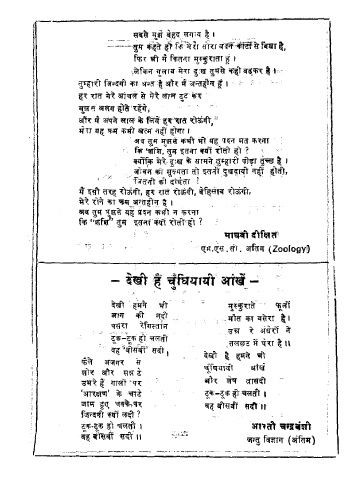 सबसे मुझे बेहद लगाव है ।
तुम कहते हो कि मेरा सारा बदन काँटों से बिंधा है,
फिर भी मैं कितना मुस्कुराता हूं ।
लेकिन गुलाब मेरा दुःख तुमसे कहीं बढ़कर है ।
तुम्हारी जिन्दगी का अन्त है और मैं अन्तहीन हूं ।
हर रात मेरे आंचल से मेरे लाल टूट कर
मुझसे अलग होते रहेंगे,
और मैं अपने लाल के लिये हर रात रोऊंगी,
मेरा यह क्रम कभी खत्म नहीं होगा ।
अब तुम मुझसे कभी भी यह प्रश्न मत करना
कि "शशि, तुम इतना क्यों रोती हो ?
क्योंकि मेरे दुःख के सामने तुम्हारी पीड़ा तुच्छ है ।
जीवन की सूक्ष्मता तो इतनी दुखदायी नहीं होती,
जितनी की दीर्घता ?
मैं इसी तरह रोऊंगी, हर रात रोऊंगी, बेहिसाब रोऊंगी,
मेरे रोने का क्रम अन्तहीन है ।
अब तुम मुझसे यह प्रश्न कभी न करना
कि "शशि" तुम इतना क्यों रोती हो ?
माधवी दीक्षित
एम.एस.सी. अंतिम (Zoology)
– देखी हैं चुंधियायी आंखें –
देखी हमने भी
आग की नदी
पसरा रेगिस्तान
टूक-टूक हो चलती
वह बीसवीं सदी ।
फैले अजगर से
शोर और सन्नाटे
उभरे हैं गालों पर
'आरक्षण' के चांटे
जाम हुए चक्के पर
ज़िन्दगी क्यों लदी ?
टूक-टूक हो चलती ।
वह बीसवीं सदी ।।
मुस्कुराते फूलों
मौत का बसेरा है ।
उस रे अंधेरों ने
तलछट में घेरा है ।।
देखी है हमने भी
चुंधियायी आंखें
और शेष त्रासदी
टूक-टूक हो चलती ।
वह बीसवीं सदी ।।
आरती चन्द्रवंशी
जन्तु विज्ञान (अंतिम)